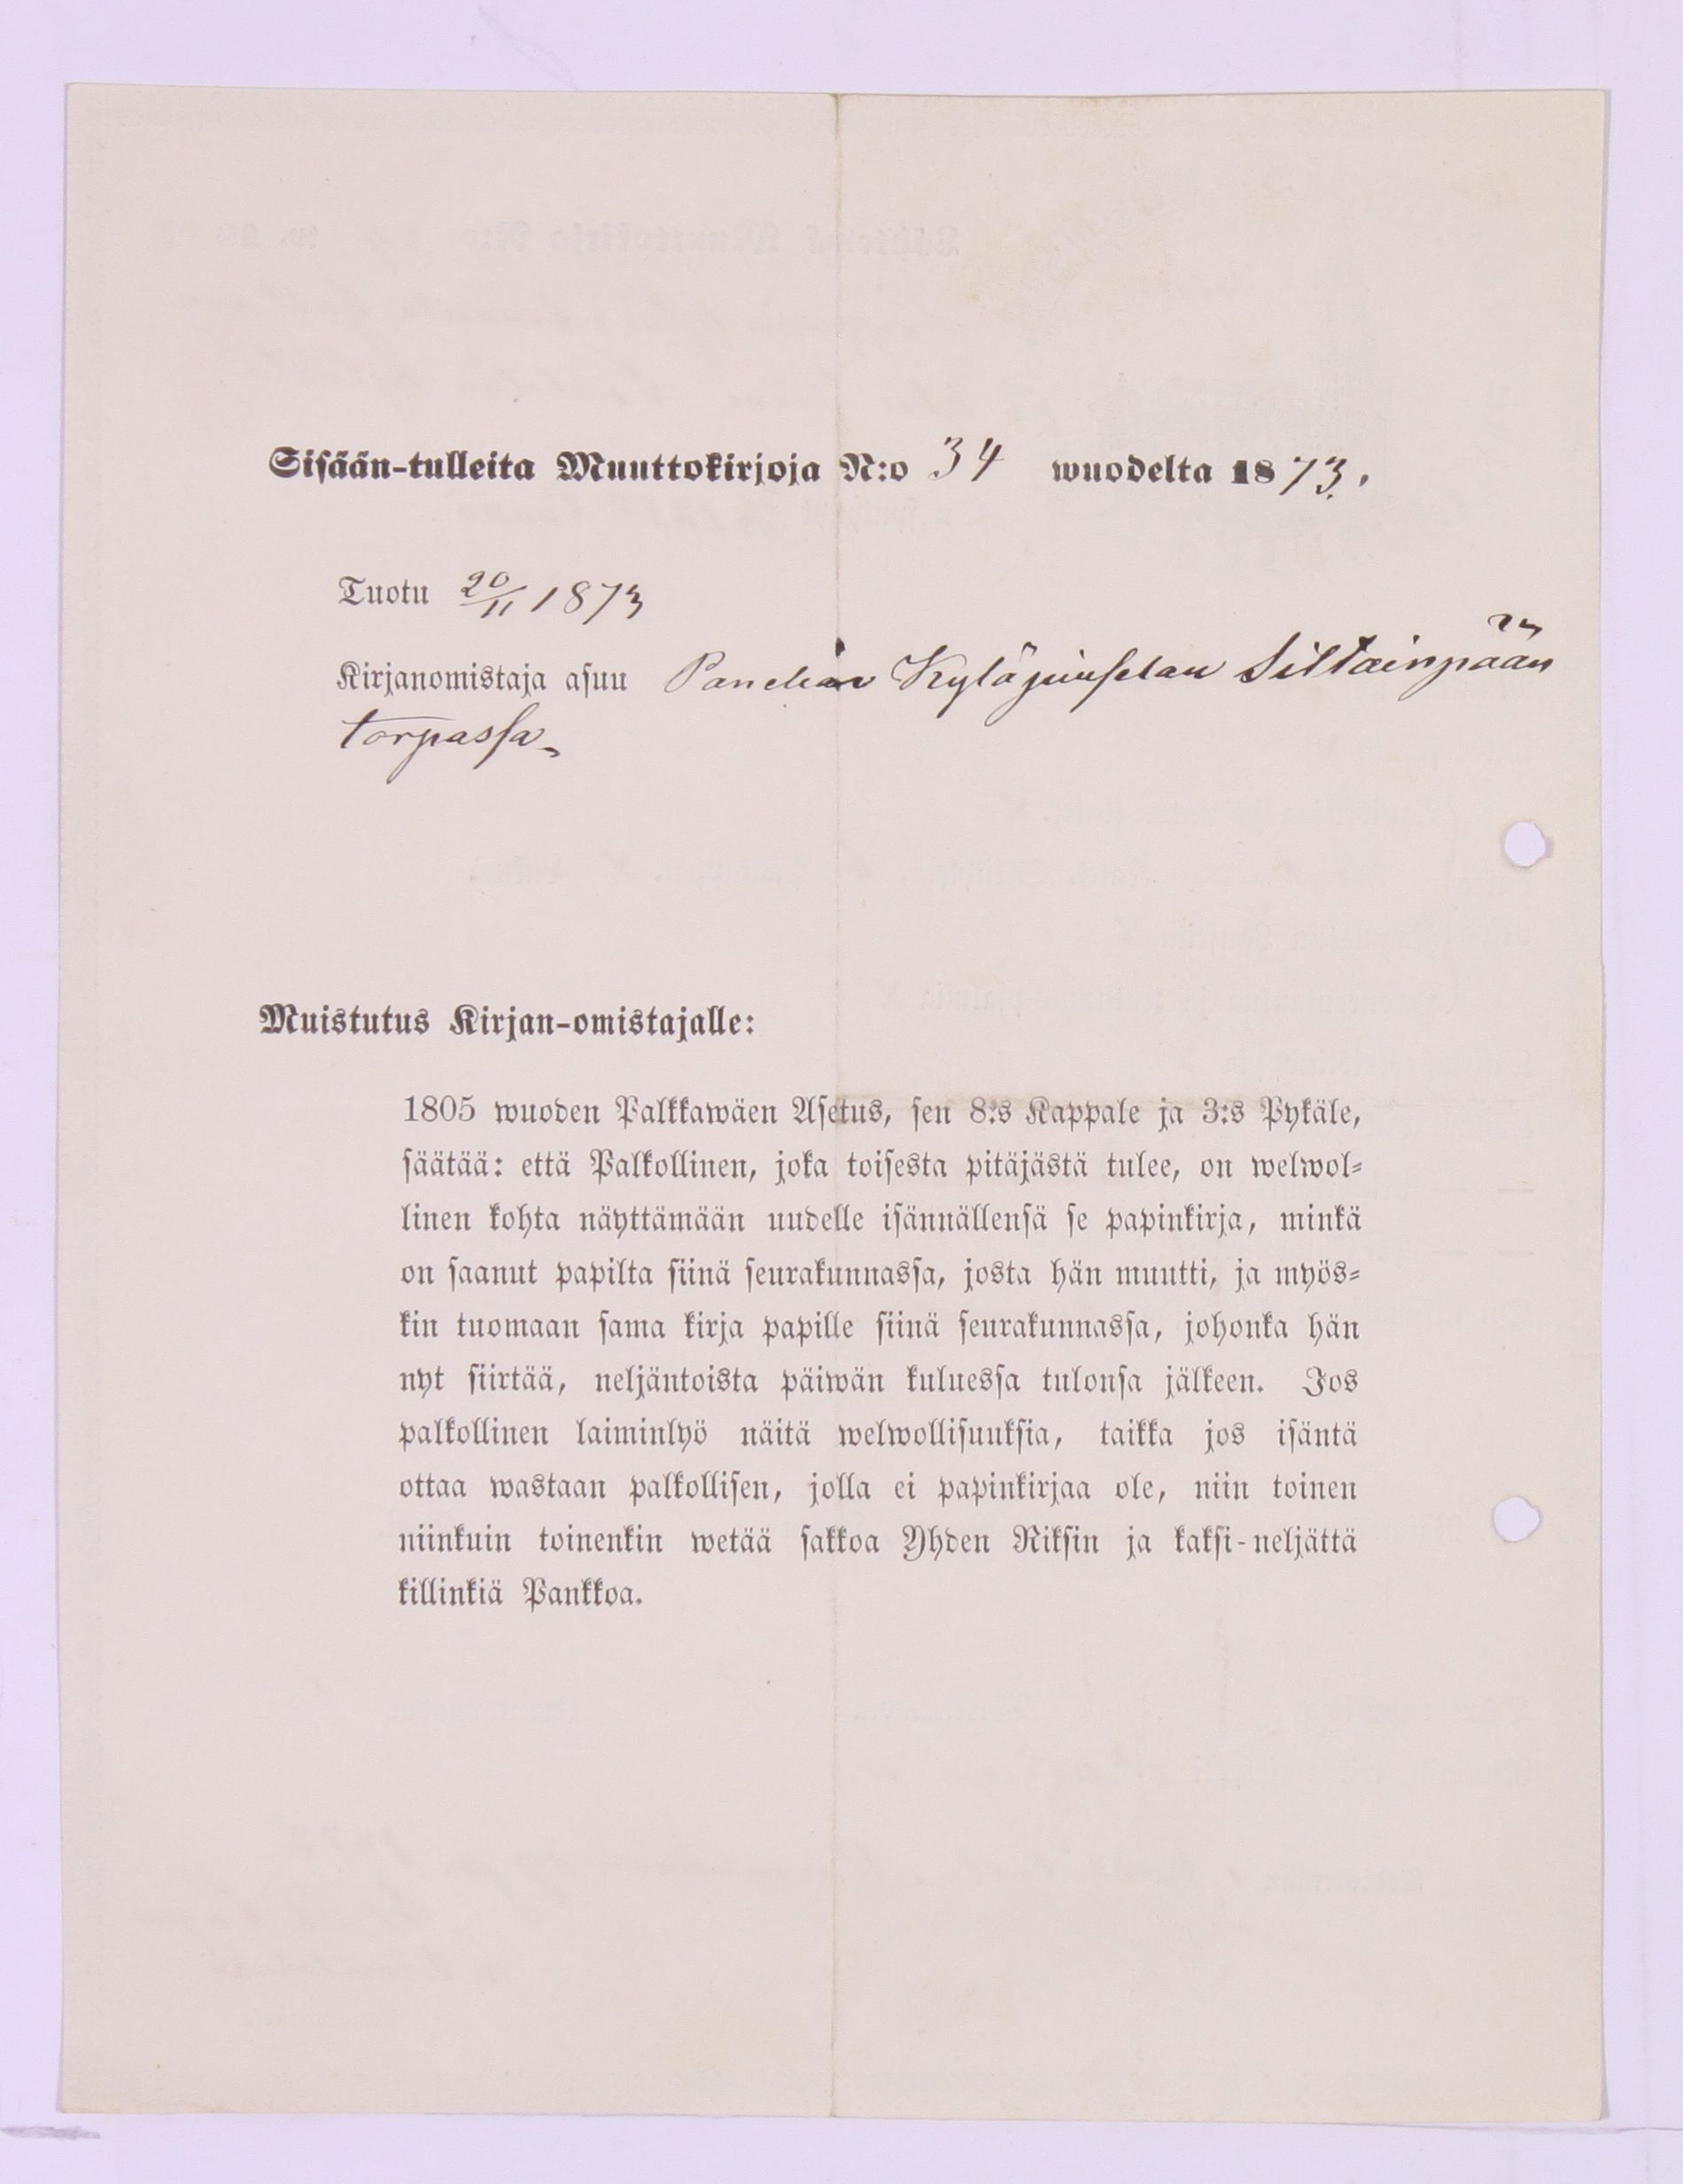 Sisään-tulleita Muuttokirjoja N:o 34 wuodelta 1873.
Tuotu 20/11 1873
Kirjanomistaja asuu Siltainpään
torpassa
Muistutus Kirjan-omistajalle:
1805 wuoden Palkkawäen Asetus, sen 8:s Kappale ja 3:s Pykäle,
säätää: että Palkollinen, joka toisesta pitäjästä tulee, on welwol-
linen kohta näyttämään uudelle isännällensä se papinkirja, minkä
on saanut papilta siinä seurakunnassa, josta hän muutti, ja myös-
kin tuomaan sama kirja papille siinä seurakunnassa, johonka hän
nyt siirtää, neljäntoista päiwän kuluessa tulonsa jälkeen. Jos
palkollinen laiminlyö näitä welwollisuuksia, taikka jos isäntä
ottaa wastaan palkollisen, jolla ei papinkirjaa ole, niin toinen
niinkuin toinenkin wetää sakkoa Yhden Riksin ja kaksi-neljättä
killinkiä Pankkoa.